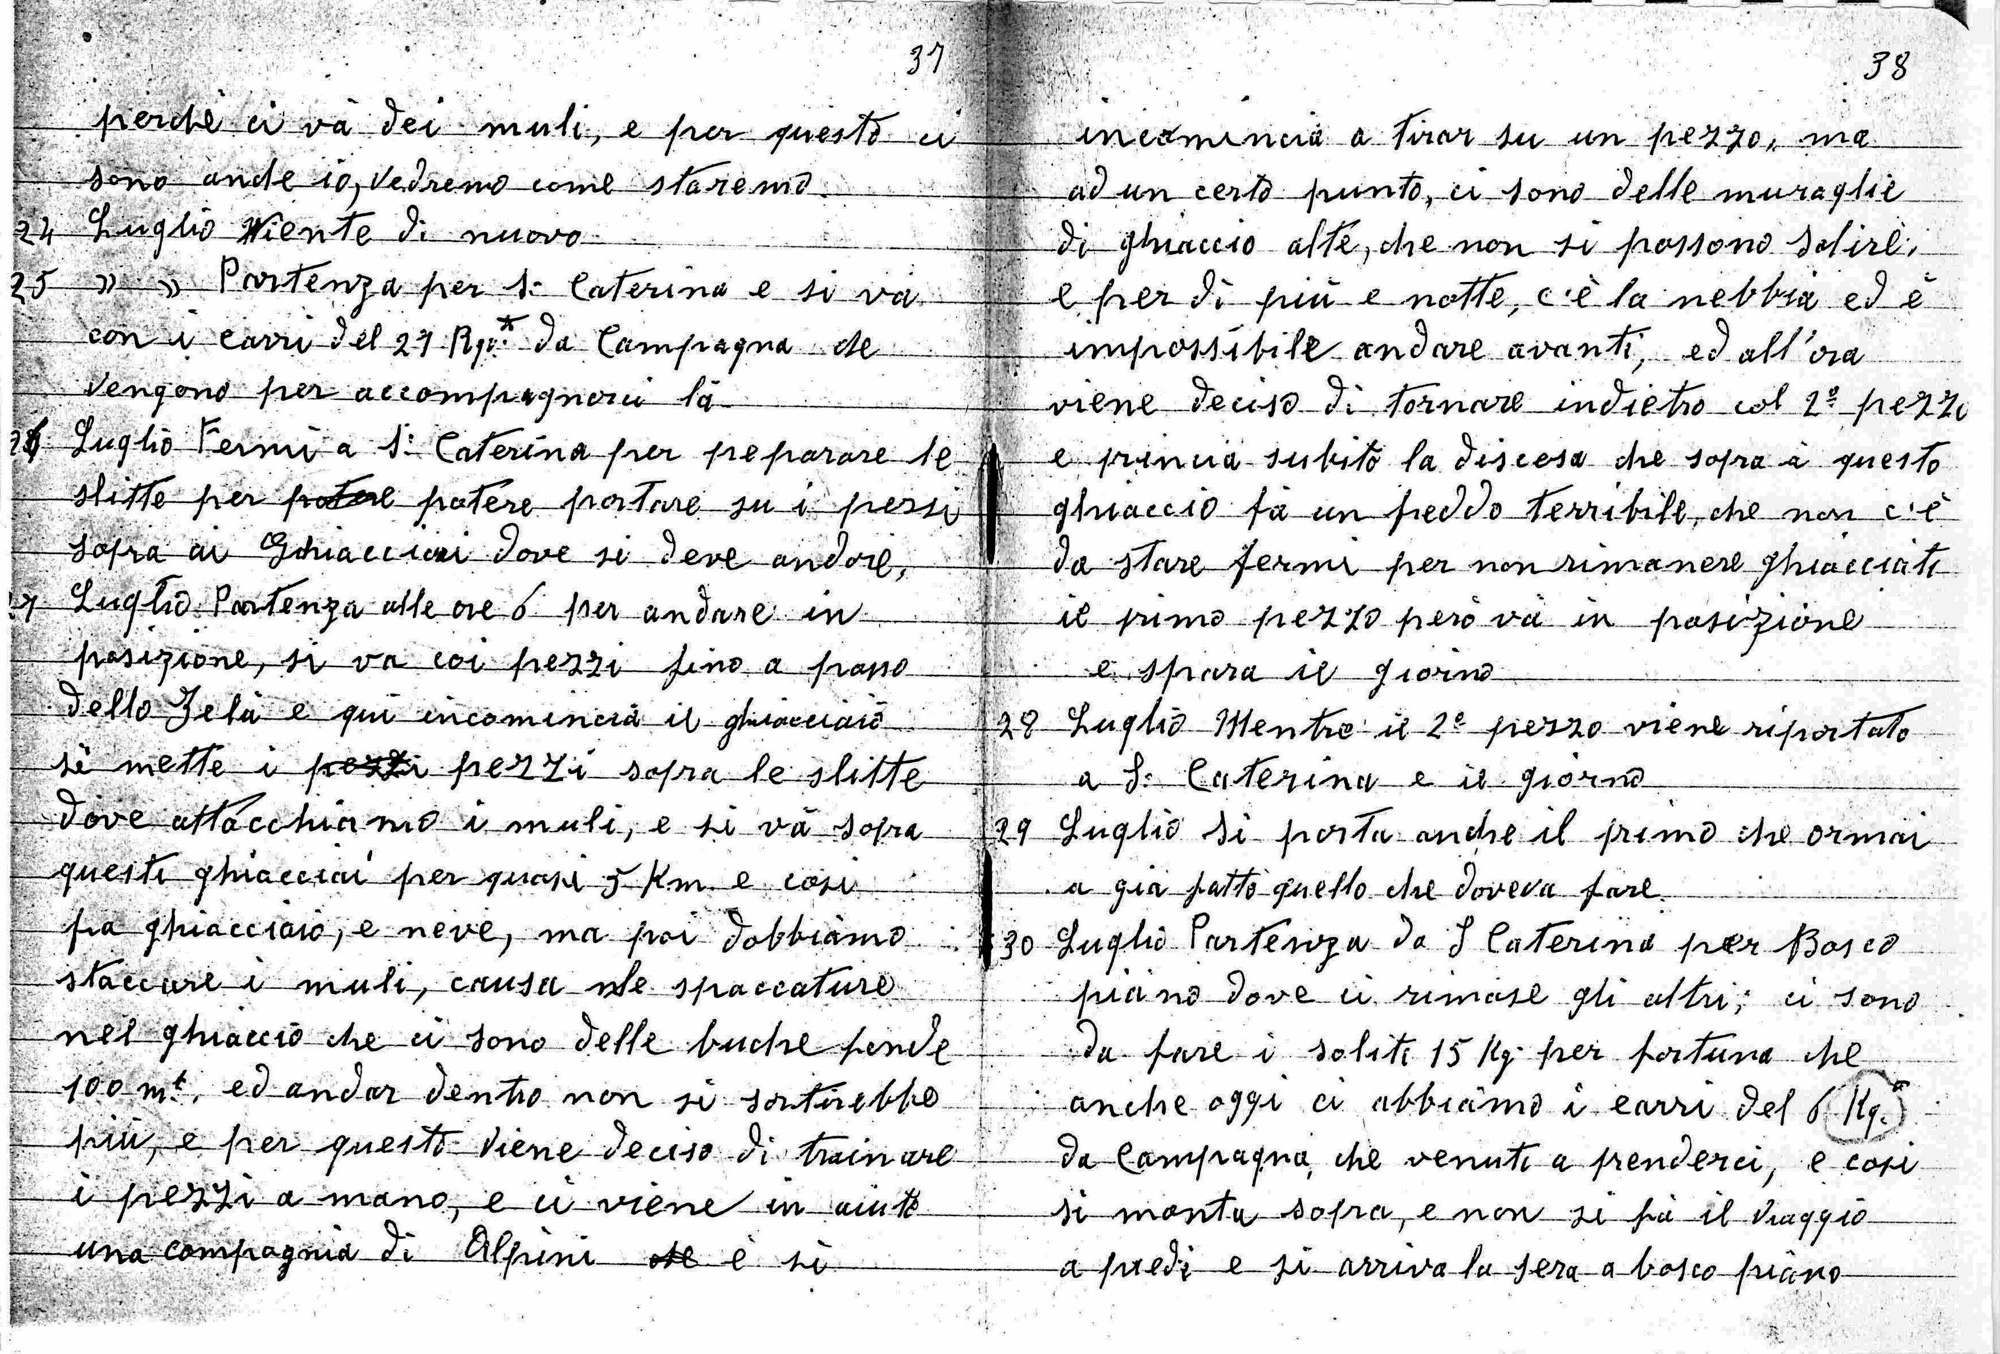 37
perchè ci và dei muli, e per questo ci
sono anche io, vedremo come staremo.
24 Luglio Niente di nuovo
25 » » Partenza per S: Caterina e si và
con i carri del 27 Rgt.* da Campagna che
vengono per accompagnarci là
26 Luglio Fermi a S: Caterina per preparare le
slitte per potere potere portare su i pezzi
sopra ai Ghiacciai dove si deve andare,
27 Luglio Partenza alle ore 6 per andare in
posizione, si va coi pezzi fino a passo
dello Zelà e qui incomincia il ghiacciaio
si mette i pezzi pezzi sopra le slitte
dove attacchiamo i muli, e si và sopra
questi ghiacciai per quasi 5 Km e cosi
fra ghiacciaio, e neve, ma poi dobbiamo
staccare i muli, causa le spaccature
nel ghiaccio che ci sono delle buche fonde
100 mt. ed andar dentro non si sortirebbe
più, e per questo viene deciso di trainare
i pezzi a mano, e ci viene in aiuto
una compagnia di Alpini che e si
38
incomincia a tirar su un pezzo, ma
ad un certo punto, ci sono delle muraglie
di ghiaccio alte, che non si possono salire,
e per di più e notte, c'è la nebbia ed è
impossibile andare avanti, ed all'ora
viene deciso di tornare indietro col 2º pezzo
e princia subito la discesa che sopra a questo
ghiaccio fà un freddo terribile, che non c'è
da stare fermi per non rimanere ghiacciati
il primo pezzo però và in posizione
e spara il giorno
28 Luglio Mentre il 2º pezzo viene riportato
a S: Caterina e il giorno
29 Luglio Si porta anche il primo che ormai
a già fatto quello che doveva fare.
30 Luglio Partenza da S Caterina per Bosco
piano dove ci rimase gli altri; ci sono
da fare i soliti 15 Kg. per fortuna che
anche oggi ci abbiamo i carri del 6 Kg.
da Campagna, che venuti a prenderci, e cosi
si monta sopra, e non si fà il viaggio
a piedi e si arriva la sera a bosco piano